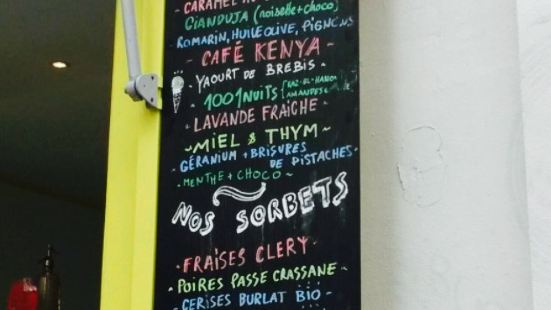 CARAMEL
GIANDUJA (noisette + choco)
ROMARIN, HUILE OLIVE, PIGNONS
- CAFÉ KENYA -
- YAOURT DE BREBIS -
- 1001 NUITS [RAZ-EL-HANOUT
AMANDES
- LAVANDE FRAICHE -
- MIEL & THYM ~
- GÉRANIUM + BRISURES
DE PISTACHES -
- MENTHE + CHOCO ~
NOS SORBETS
- FRAISES CLERY -
- POIRES PASSE CRASSANE ~
- CERISES BURLAT BIO -